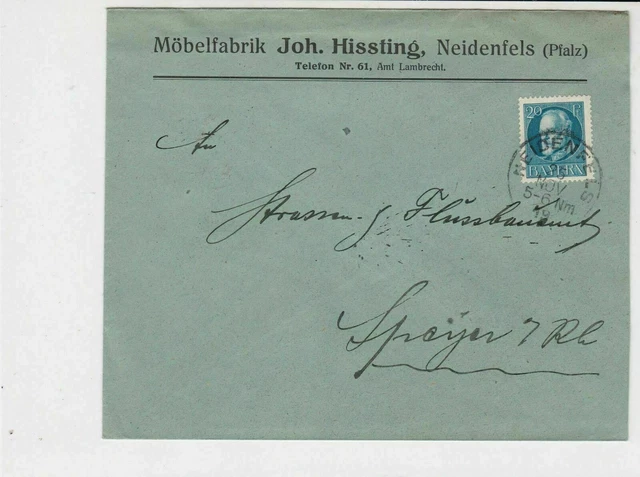 Möbelfabrik Joh. Hissting, Neidenfels (Pfalz)
Telefon Nr. 61, Amt Lambrecht.
20 Pf
BAYERN
NEIDENFELS
NOV
5-6 Nm
19
An
Strassen- & Flussbauamt
Speyer a/Rh